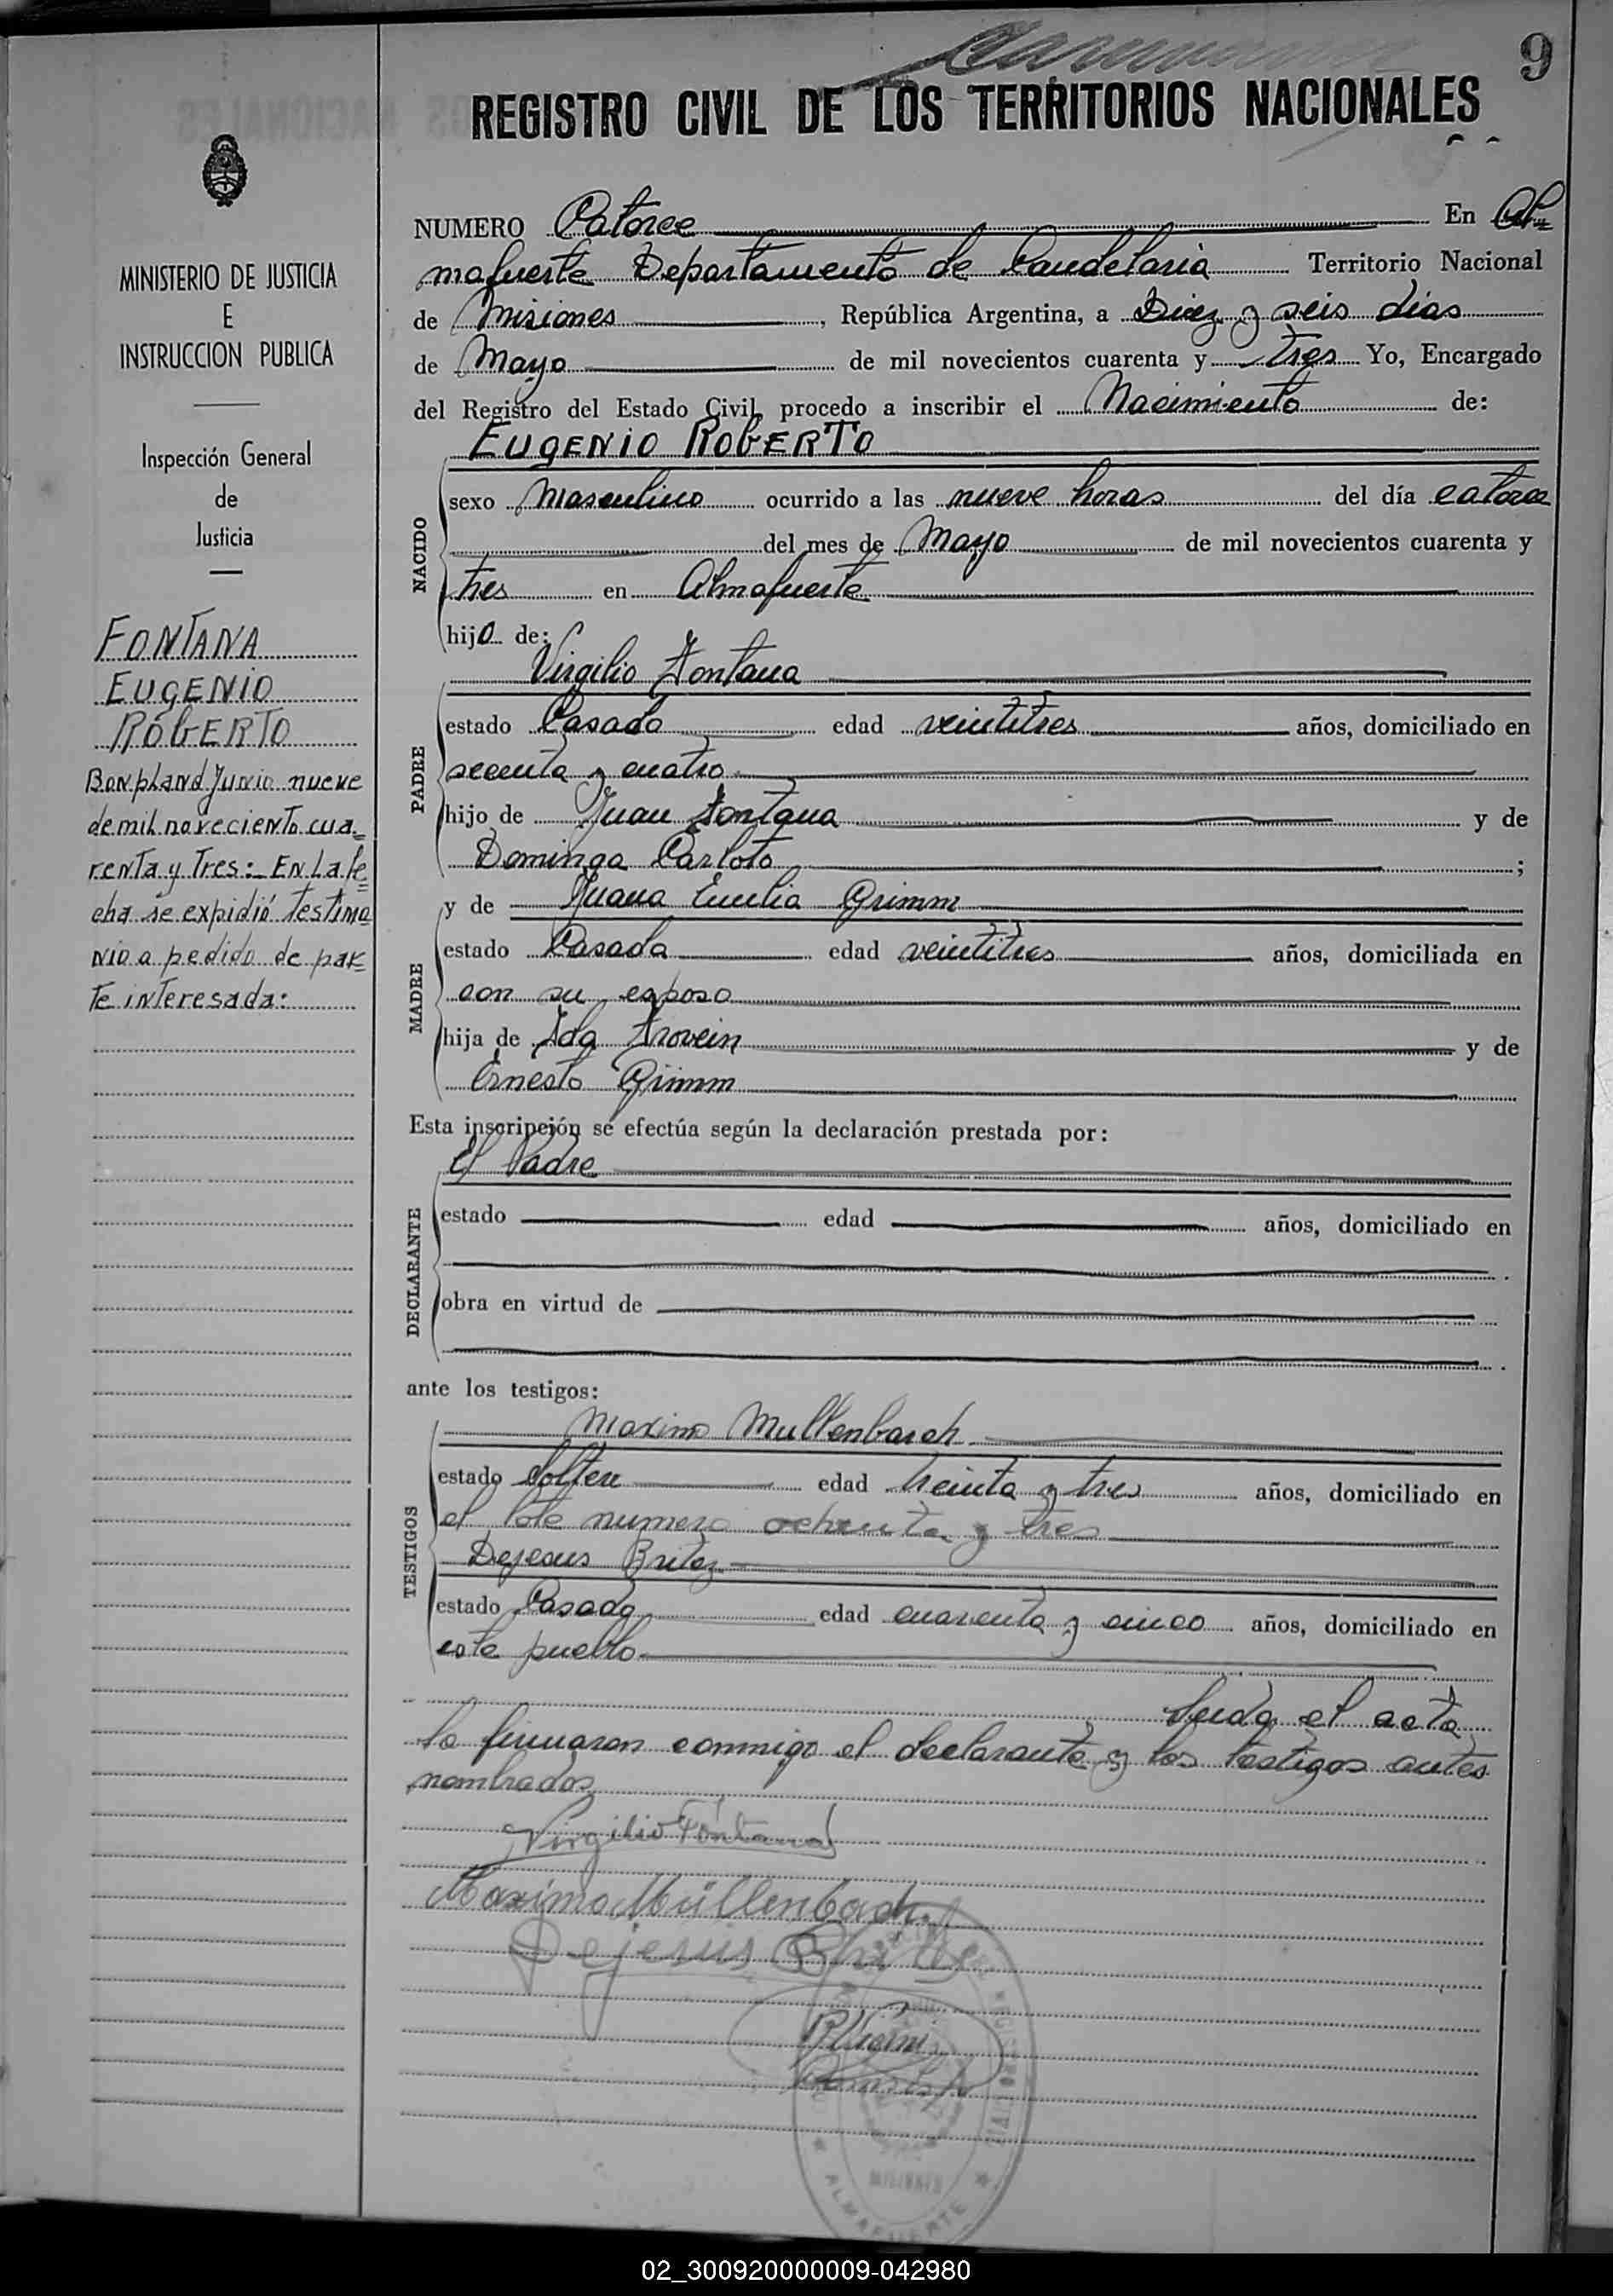 9
REGISTRO CIVIL DE LOS TERRITORIOS NACIONALES
NUMERO Catorce En Al=
mafuerte Departamento de Candelaria Territorio Nacional
de Misiones, República Argentina, a Diez y seis dias
de Mayo de mil novecientos cuarenta y tres Yo, Encargado
del Registro del Estado Civil, procedo a inscribir el Nacimiento de:
EUGENIO ROBERTO
NACIDO
sexo Masculino ocurrido a las nueve horas del día catorce
del mes de Mayo de mil novecientos cuarenta y
tres en Almafuerte
hijo de:
Virgilio Fontana
PADRE
estado Casado edad veintitres años, domiciliado en
secenta y cuatro
hijo de Juan Fontana y de
Dominga Carloto;
y de Juana Emilia Grimm
MADRE
estado Casada edad veintitres años, domiciliada en
con su esposo
hija de Ida y de
Ernesto Grimm
Esta inscripción se efectúa según la declaración prestada por:
El Padre
DECLARANTE
estado edad años, domiciliado en
obra en virtud de
ante los testigos:
TESTIGOS
Maximo Mullenbach
estado Soltero edad treinta y tres años, domiciliado en
el lote numero ochenta y tres
Dejesus Britez
estado Casado edad cuarenta y cinco años, domiciliado en
este pueblo
Leida el acta
la firmaron conmigo el declarante y los testigos antes
nombrados
Virgilio Fontana
Maximo Müllenbach
Dejesus
MISIONES
ALMAFUERTE
MINISTERIO DE JUSTICIA
E
INSTRUCCION PUBLICA
Inspección General
de
Justicia
FONTANA
EUGENIO
ROBERTO
Bonpland Junio nueve
de mil noveciento cua=
renta y Tres: En La fe=
cha se expidió Testimo
nio a pedido de par=
te interesada:
02_300920000009-042980